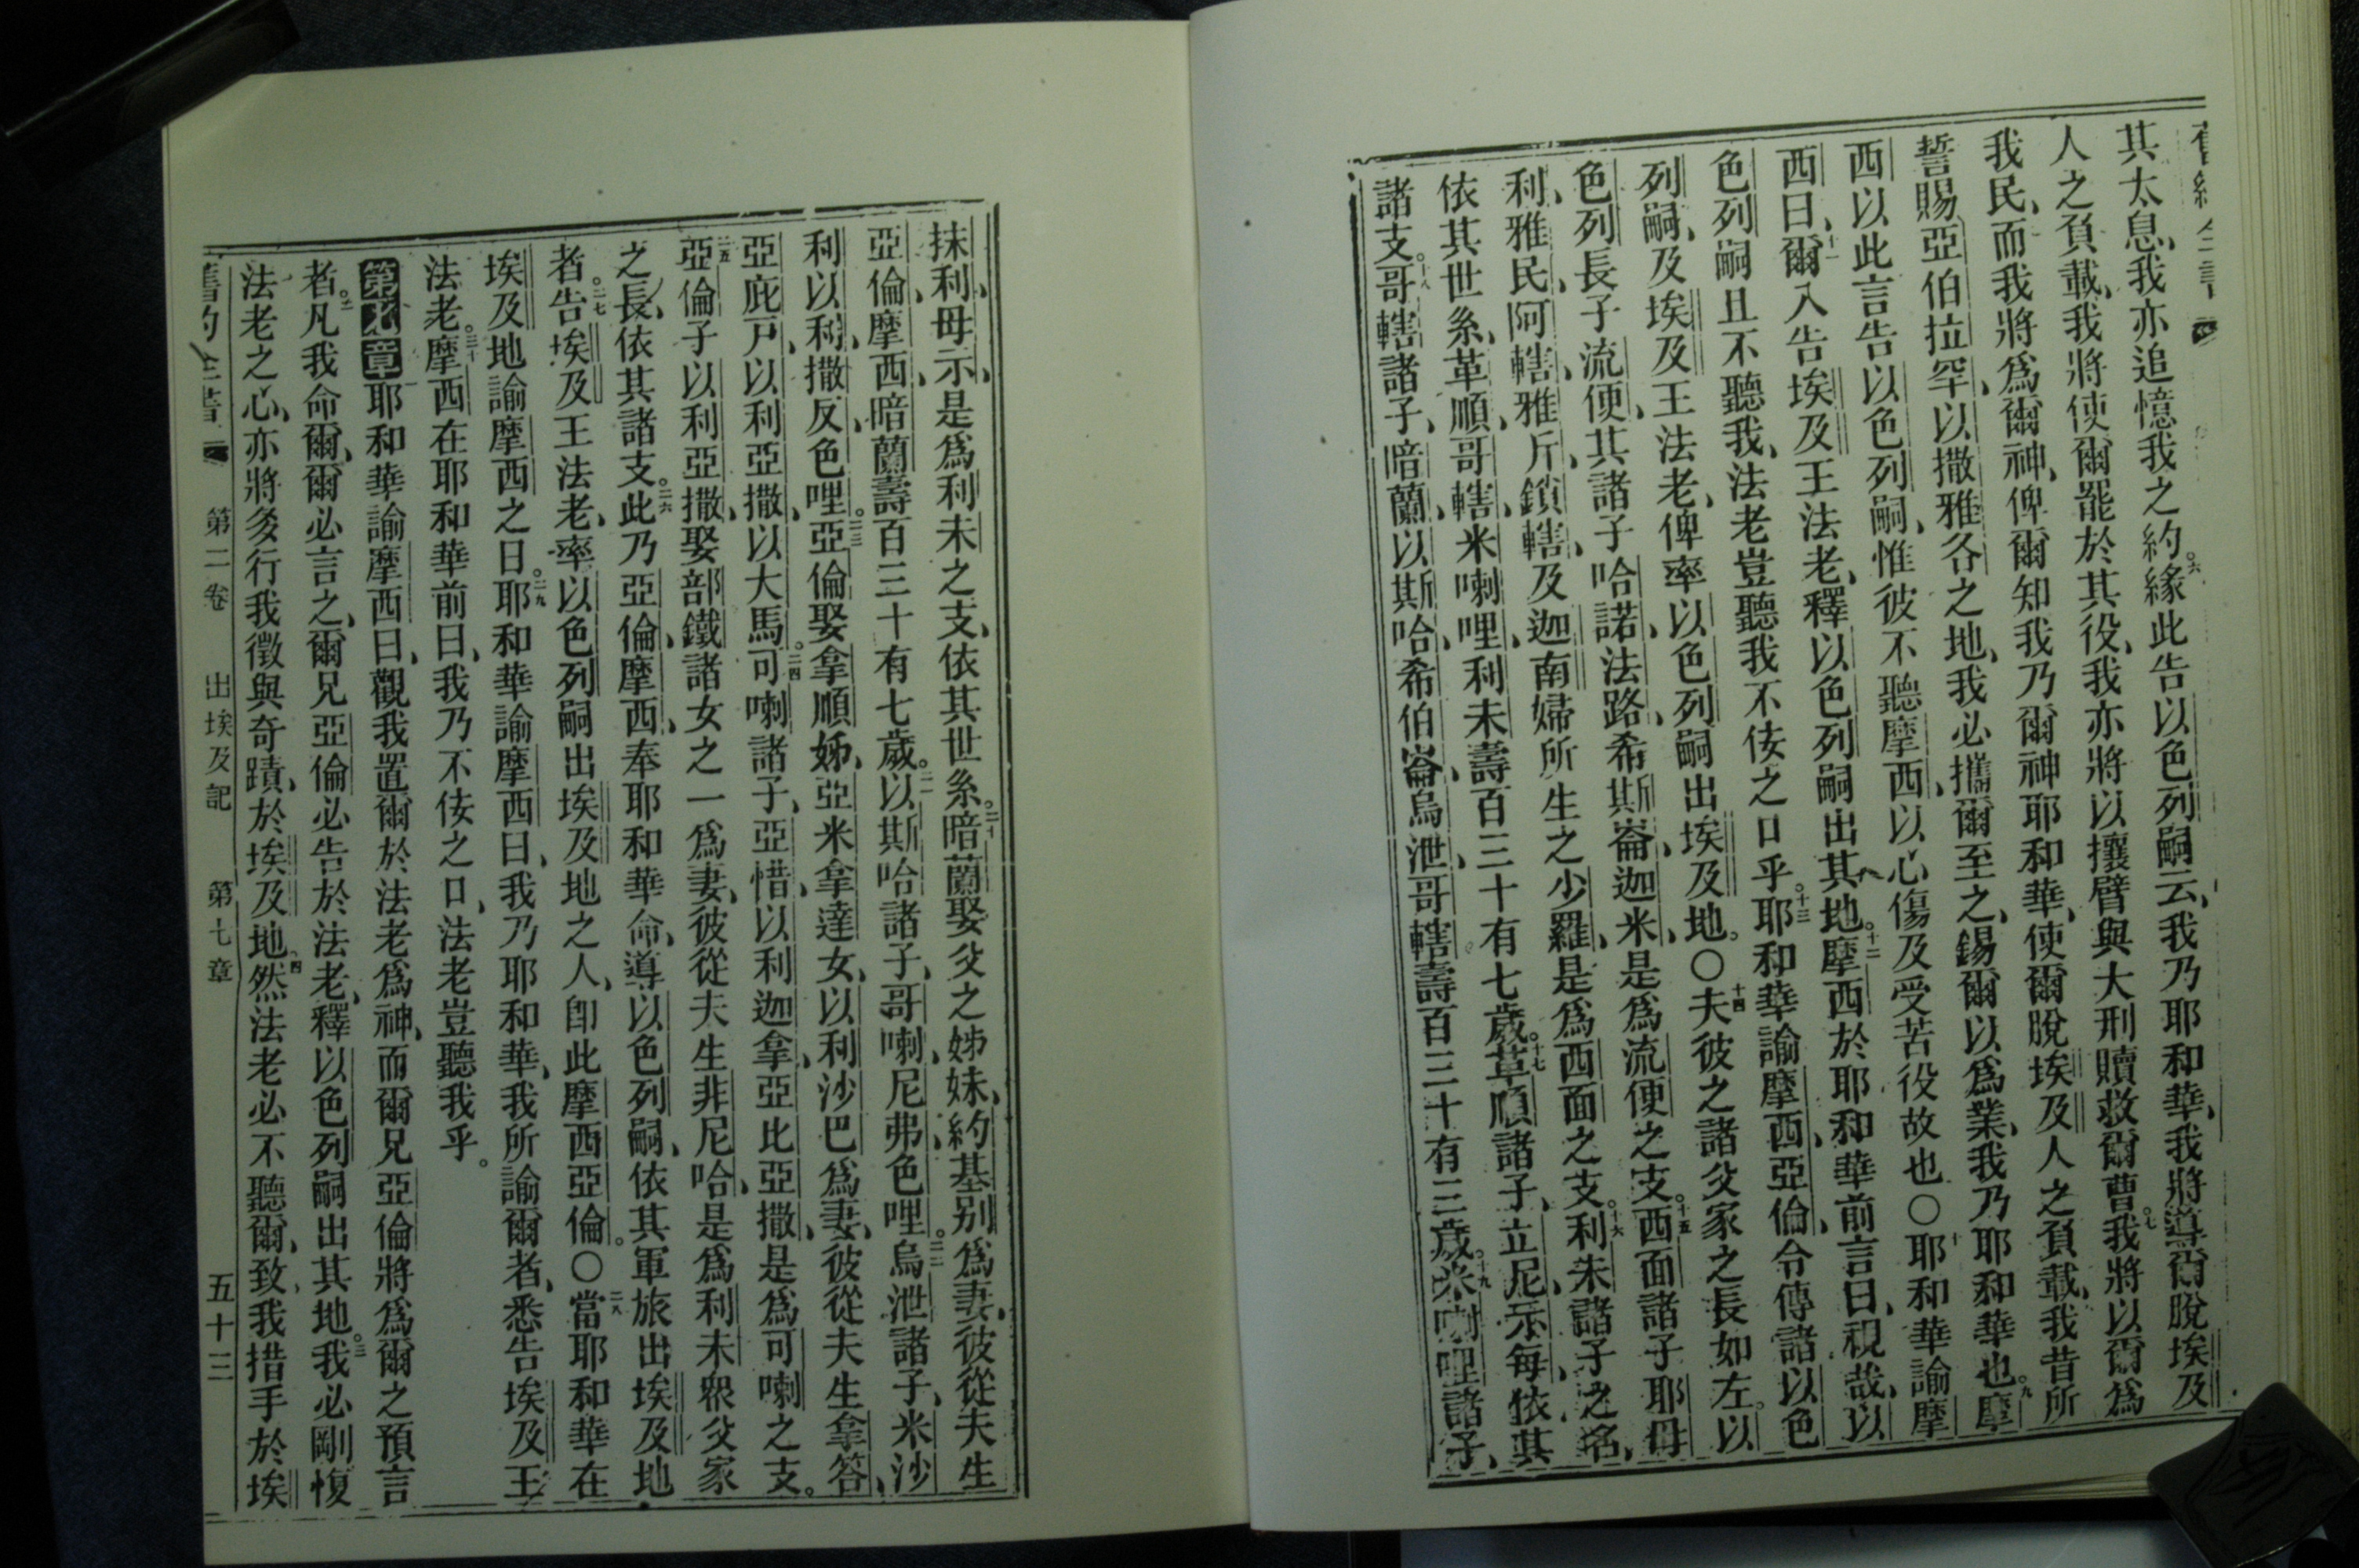 舊約全書
其太息、我亦追憶我之約。六緣此告以色列嗣云、我乃耶和華、我將導爾脫埃及
人之負載、我將使爾罷於其役、我亦將以攘臂與大刑贖救爾曹。七我將以爾爲
我民、而我將爲爾神、俾爾知我乃爾神耶和華、使爾脫埃及人之負載、我昔所
誓賜亞伯拉罕、以撒雅各之地、我必攜爾至之、錫爾以爲業、我乃耶和華也。九摩
西以此言告以色列嗣、惟彼不聽摩西、以心傷及受苦役故也○十耶和華諭摩
西曰、十一爾入告埃及王法老、釋以色列嗣出其地。十二摩西於耶和華前言曰、視哉、以
色列嗣且不聽我、法老豈聽我不侫之口乎。十三耶和華諭摩西亞倫、令傳諸以色
列嗣、及埃及王法老、俾率以色列嗣出埃及地。○十四夫彼之諸父家之長如左。以
色列長子流便、其諸子哈諾、法路、希斯崙、迦米、是爲流便之支。十五西面諸子耶母
利、雅民、阿轄、雅斤、鎖轄、及迦南婦所生之少羅、是爲西面之支。十六利未諸子之名、
依其世系、革順、哥轄、米喇哩、利未壽百三十有七歲。十七革順諸子、立尼、示每、依其
諸支。十八哥轄諸子、暗蘭、以斯哈、希伯崙、烏泄、哥轄壽百三十有三歲。十九米喇哩諸子、
抹利、母示、是爲利未之支、依其世系。二十暗蘭娶父之姊妹、約基别爲妻、彼從夫生
亞倫、摩西、暗蘭壽百三十有七歲。二一以斯哈諸子、哥喇、尼弗、色哩。二二烏泄諸子、米沙
利、以利撒反、色哩。二三亞倫娶拿順姊、亞米拿達女、以利沙巴爲妻、彼從夫生拿答、
亞庇戸、以利亞撒、以大馬。二四可喇諸子、亞惜、以利迦拿、亞比亞撒、是爲可喇之支。
二五亞倫子以利亞撒、娶部鐵諸女之一爲妻、彼從夫生非尼哈、是爲利未眾父家
之長、依其諸支。二六此乃亞倫、摩西、奉耶和華命、導以色列嗣、依其軍旅出埃及地
者。二七告埃及王法老、率以色列嗣出埃及地之人、卽此摩西亞倫。○二八當耶和華在
埃及地諭摩西之日。二九耶和華諭摩西曰、我乃耶和華、我所諭爾者、悉告埃及王
法老。三十摩西在耶和華前曰、我乃不侫之口、法老豈聽我乎。
第七章耶和華諭摩西曰、觀我置爾於法老爲神、而爾兄亞倫將爲爾之預言
者。二凡我命爾、爾必言之、爾兄亞倫必告於法老、釋以色列嗣出其地。三我必剛愎
法老之心、亦將多行我徵與奇蹟、於埃及地。四然法老必不聽爾、致我措手於埃
舊約全書 第二卷 出埃及記 第七章 五十三